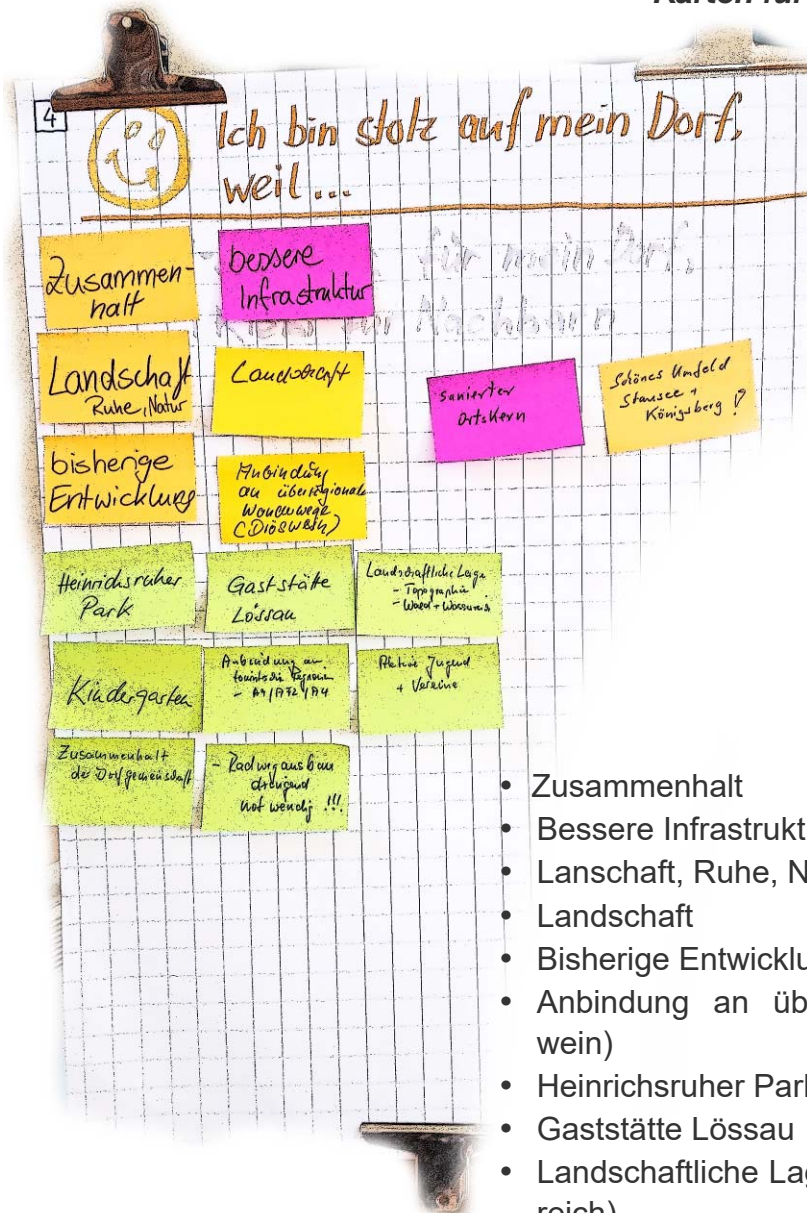 Karten für
4
Ich bin stolz auf mein Dorf,
weil...
für mein Dorf,
Nachbarn
Zusammen-
halt
bessere
Infrastruktur
Landschaft
Ruhe, Natur
Landschaft
sanierter
Ortskern
Schönes Umfeld
Stausee +
Königsberg
bisherige
Entwicklung
Anbindung
an überregionale
Wanderwege
Heinrichsruher
Park
Gaststätte
Lössau
Landschaftliche Lage
- Topographie
- Wald + Wasserreich
Kindergarten
Anbindung an
touristische Regionen
- A9/A72/A4
Aktive Jugend
+ Vereine
Zusammenhalt
der Dorfgemeinschaft
- Radwegausbau
dringend
notwendig !!!
• Zusammenhalt
• Bessere Infrastrukt
• Lanschaft, Ruhe, N
• Landschaft
• Bisherige Entwicklu
• Anbindung an üb
wein)
• Heinrichsruher Park
• Gaststätte Lössau
• Landschaftliche Lag
reich)